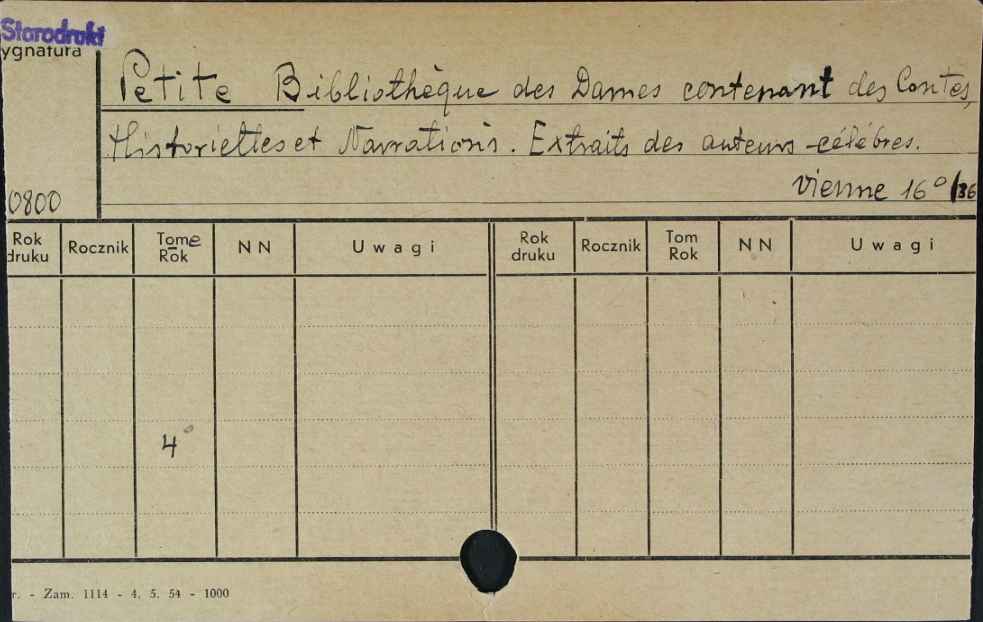 Starodruki
ygnatura
Petite Bibliothèque des Dames contenant des Contes,
Historiettes et Narrations. Extraits des auteurs célébres.
Vienne 16° /36
0800
Rok druku Rocznik Tome Rok NN Uwagi Rok druku Rocznik Tom Rok NN Uwagi
4°
r. - Zam. 1114 - 4. 5. 54 - 1000